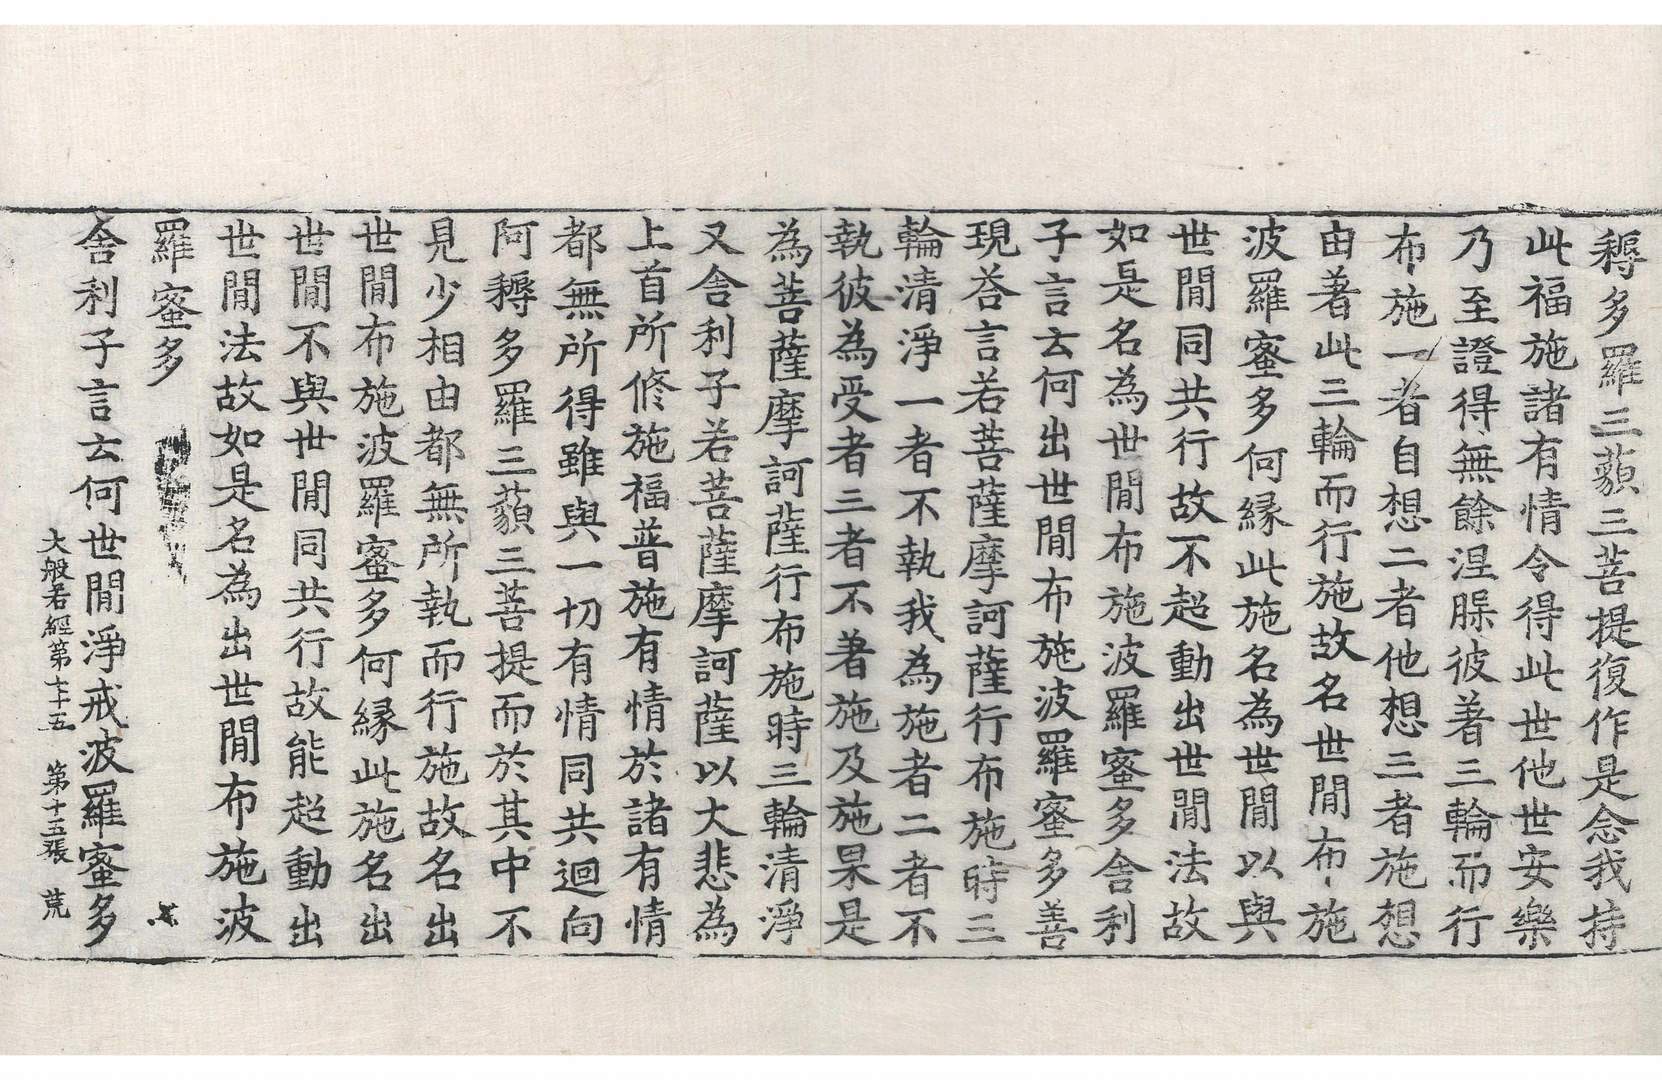 耨多羅三藐三菩提復作是念我持
此福施諸有情令得此世他世安樂
乃至證得無餘涅槃彼著三輪而行
布施一者自想二者他想三者施想
由著此三輪而行施故名世間布施
波羅蜜多何緣此施名為世間以與
世間同共行故不超動出世間法故
如是名為世間布施波羅蜜多舍利
子言云何出世間布施波羅蜜多善
現荅言若菩薩摩訶薩行布施時三
輪清淨一者不執我為施者二者不
執彼為受者三者不著施及施果是
為菩薩摩訶薩行布施時三輪清淨
又舍利子若菩薩摩訶薩以大悲為
上首所修施福普施有情於諸有情
都無所得雖與一切有情同共迴向
阿耨多羅三藐三菩提而於其中不
見少相由都無所執而行施故名出
世間布施波羅蜜多何緣此施名出
世間不與世間同共行故能超動出
世間法故如是名為出世間布施波
羅蜜多
舍利子言云何世間淨戒波羅蜜多
大般若經第七十五 第十五張 荒